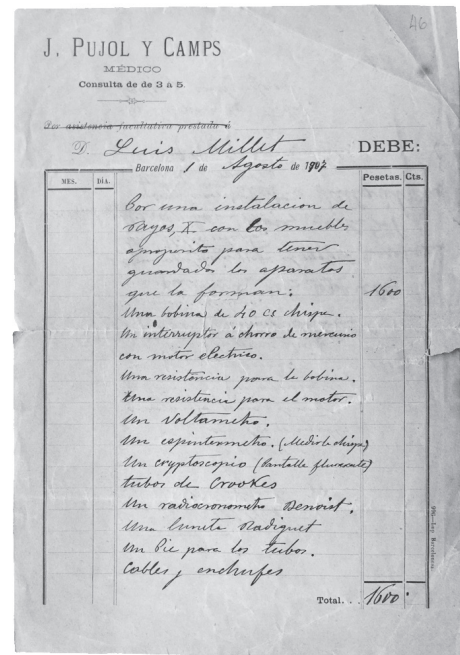 46
J. PUJOL Y CAMPS
MÉDICO
Consulta de de 3 á 5.
Por asistencia facultativa prestada á
D. Luis Millet DEBE:
Barcelona 1 de Agosto de 1907
MES. DÍA. Pesetas. Cts.
Por una instalacion de
rayos, X con los muebles
aproposito para tener
guardados los aparatos
que la forman: 1600
Una bobina de 40 cs chispa.
Un interruptor á chorro de mercurio
con motor electrico.
Una resistencia para la bobina.
Una resistencia para el motor.
Un Voltametro.
Un espintermetro. (Medir la chispa)
Un cryptoscopio (Pantalla fluorxente)
tubos de Crookes
Un radiocronometro Benoist.
Una luneta Radiguet
Un Pie para los tubos.
Cables y enchufes
Total. . . 1600